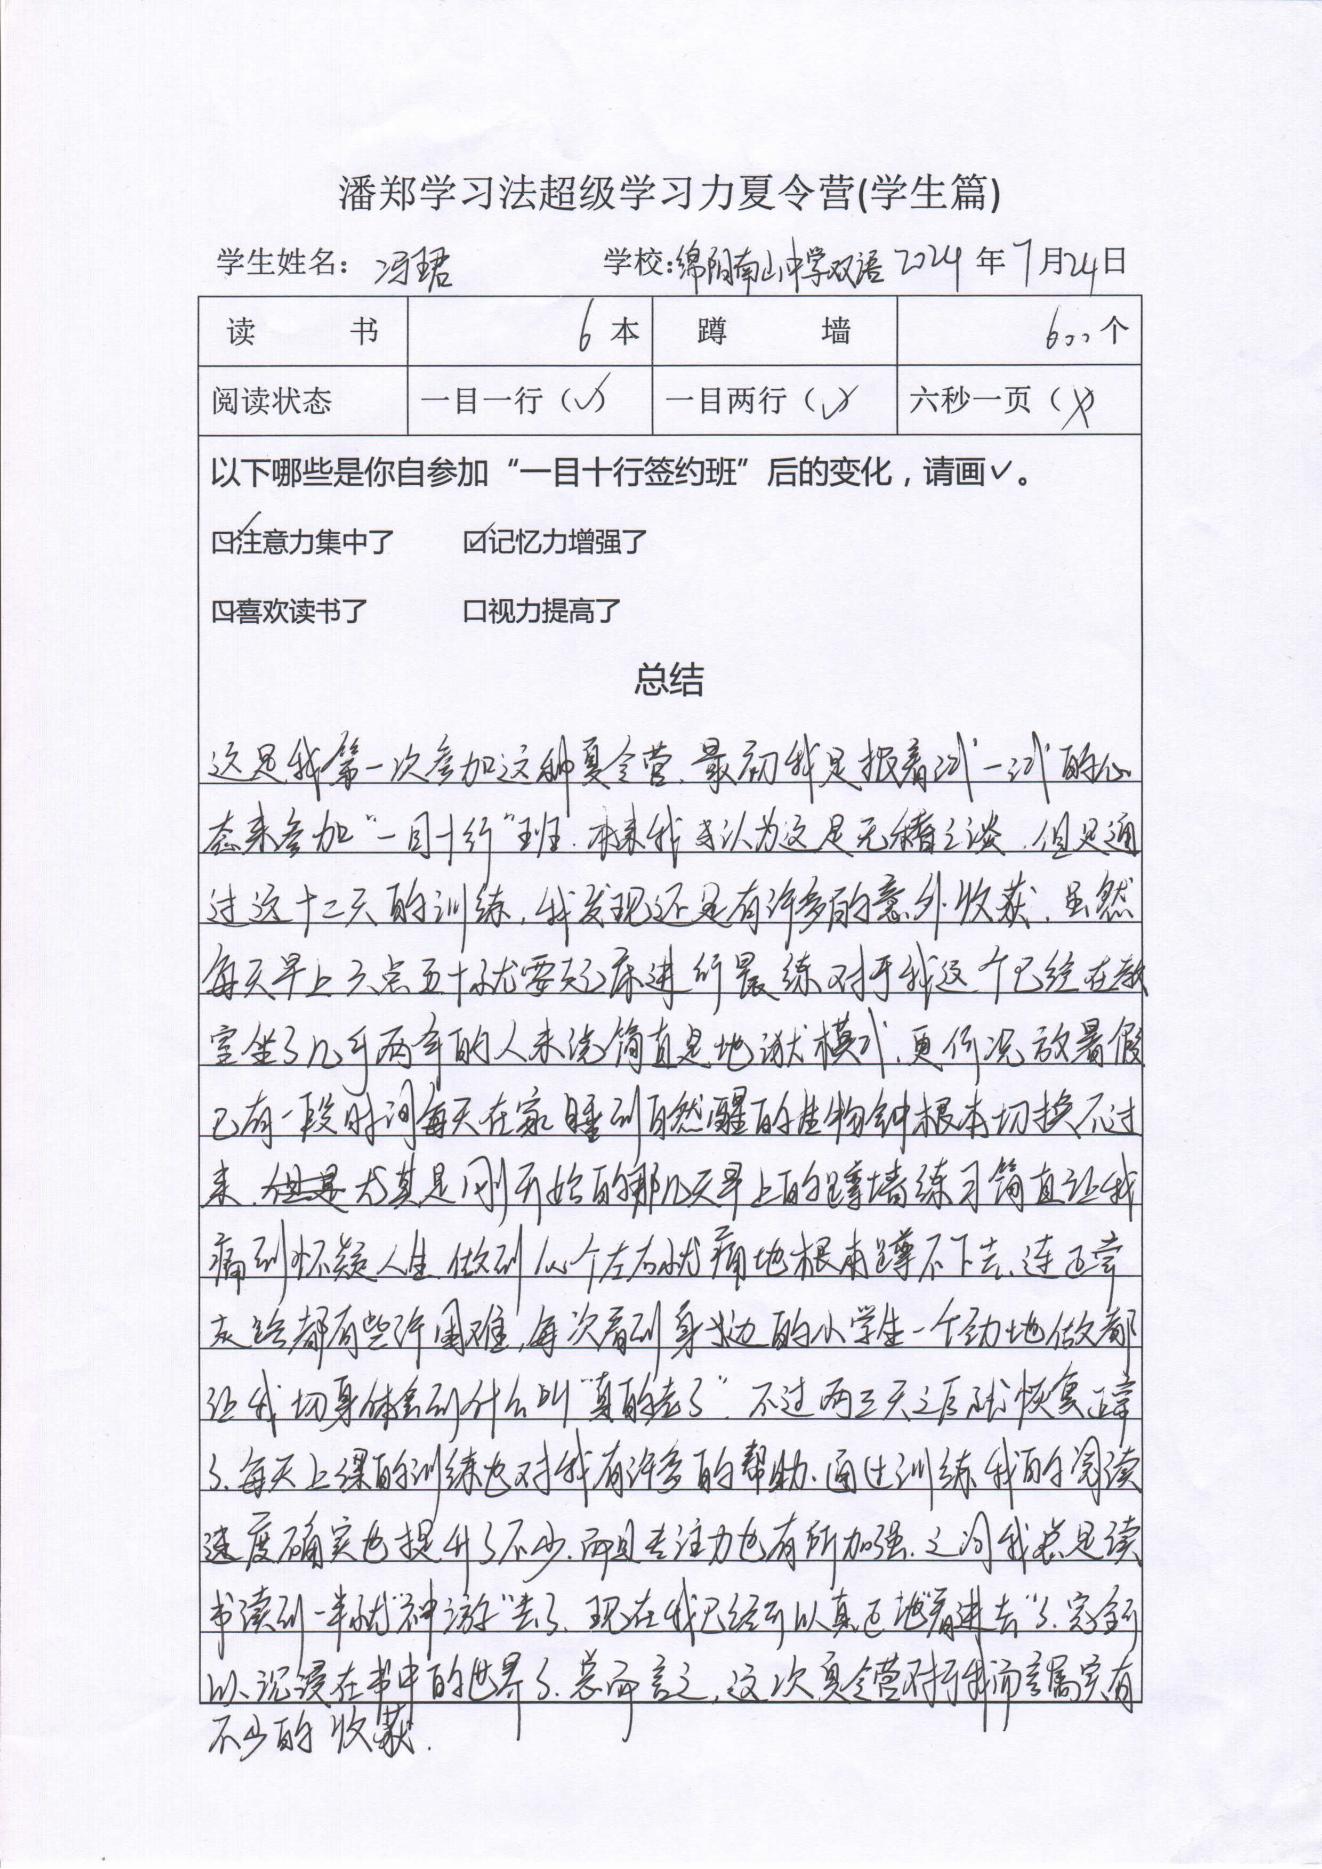 潘郑学习法超级学习力夏令营(学生篇)
学生姓名：冯珺 学校:绵阳南山中学双语 2024年7月24日
读 书 6本 蹲 墙 600个
阅读状态 一目一行（✓） 一目两行（✓） 六秒一页（✗）
以下哪些是你自参加“一目十行签约班”后的变化，请画✓。
☑注意力集中了 ☑记忆力增强了
口喜欢读书了 口视力提高了
总结
这是我第一次参加这种夏令营.最初我是报着试一试的心
态来参加“一目十行”班.本来我认为这是无稽之谈.但是通
过这十二天的训练,我发现还是有许多的意外收获.虽然
每天早上六点五十就要起床进行晨练对于我这个已经在教
室坐了几乎两年的人来说简直是地狱模式.更何况放暑假
已有一段时间每天在家睡到自然醒的生物钟根本切换不过
来.但是尤其是刚开始的那几天早上的蹲墙练习简直让我
痛到怀疑人生.做到个左右就痛地根本蹲不下去、连正常
走路都有些许困难,每次看到身边的小学生一个劲地做都
让我切身体会到什么叫“真的老了”.不过两三天之后就恢复正常
了.每天上课的训练也对我有许多的帮助.通过训练我的阅读
速度确实也提升了不少.而且专注力也有所加强.之间我总是读
书读到一半就“神游”去了.现在我已经可以真正地“看进去”了.完全可
以沉浸在书中的世界了.总而言之,这次夏令营对于我而言属实有
不少的收获.